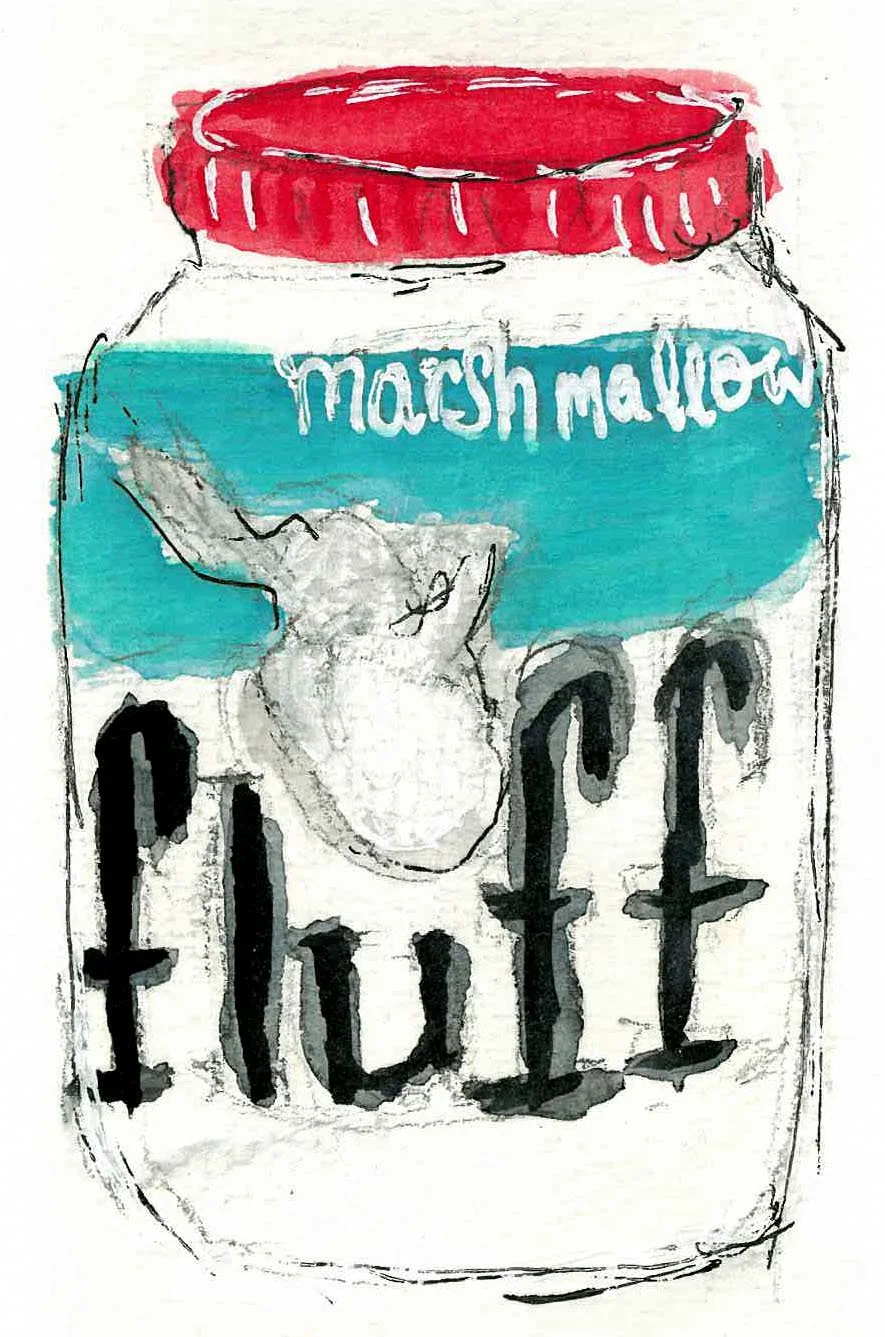 marshmallow
fluff